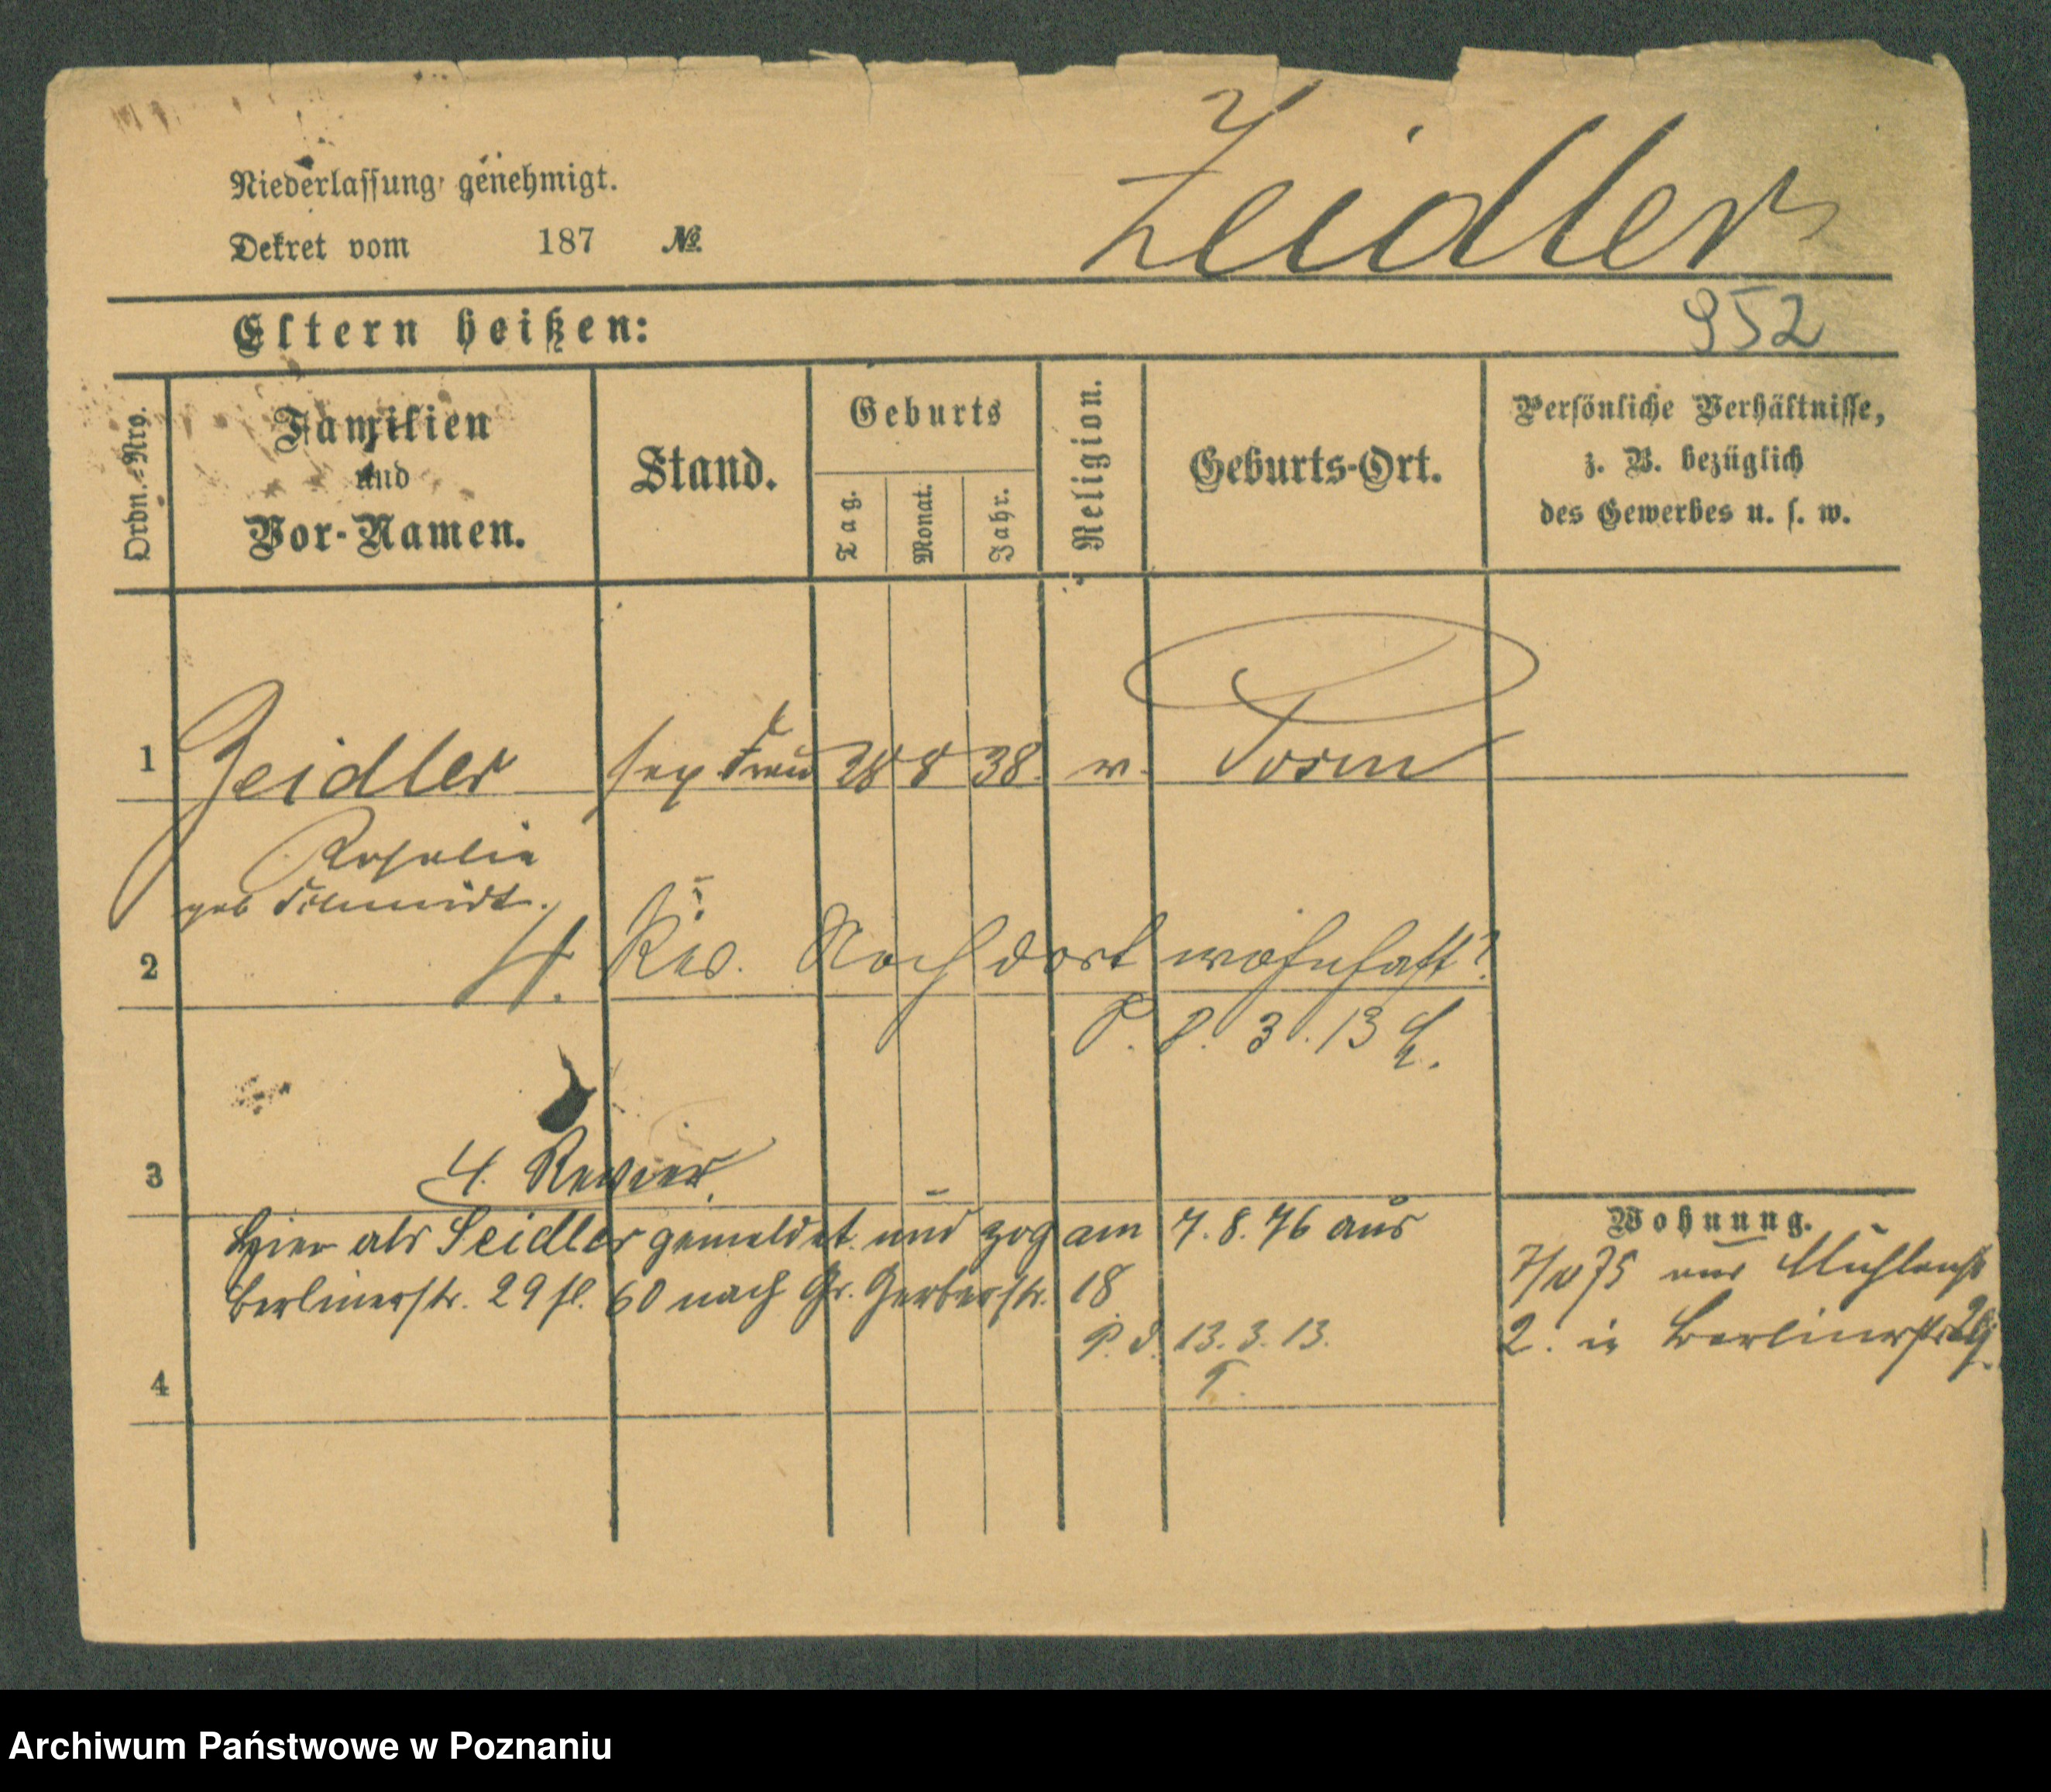 Niederlassung genehmigt.
Dekret vom 187 №
Zeidler
Eltern heißen:
952
Ordn.-Nro.
Familien
und
Vor-Namen.
Stand.
Geburts
Tag.
Monat.
Jahr.
Religion.
Geburts-Ort.
Persönliche Verhältnisse,
z. B. bezüglich
des Gewerbes u. s. w.
1 Zeidler sep. Frau 28 8 38.
Rosalie
geb Schmidt.
2 4. Rev. Noch dort wohnhaft?
P. 8. 3. 13
3 4. Revier.
Hier als Seidler gemeldet und zog am 7. 8. 76 aus
Berlinerstr. 29 fl. 60 nach Gr. Gerberstr. 18
P. d. 13. 3. 13.
4
Wohnung.
75 aus Mühlenstr
2. in Berlinerstr 29
Archiwum Państwowe w Poznaniu